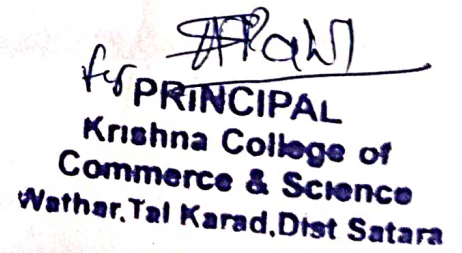 for PRINCIPAL
Krishna College of
Commerce & Science
Wathar.Tal Karad,Dist Satara